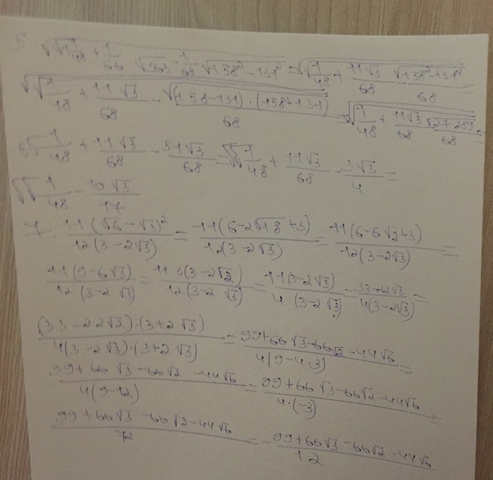 5
√(√(1/48) + 1/66 √363 - 1/68 √(158² - 134²)) = √(√(1/48) + 11√3/68 - √(158² - 134²)/68) =
√(√(1/48) + 11√3/68 - √((158-134)·(158+134))/68) = √(√(1/48) + 11√3/68
√(1/48) + 11√3/68 - 51√3/68 = √(√(1/48) + 11√3/68 - 3√3/4 =
√(√(1/48) - 10√3/17
7. 11(√6 - √3)²/12(3 - 2√3) = 11(6 - 2√18 + 3)/12(3 - 2√3) = 11(6 - 6√2 + 3)/12(3 - 2√3) =
11(9 - 6√3)/12(3 - 2√3) = 11·3(3 - 2√2)/12(3 - 2√3) = 11(3 - 2√3)/4(3 - 2√3) = 33 - 22√3/4(3 - 2√3) =
(33 - 22√2)·(3 + 2√3)/4(3 - 2√3)·(3 + 2√3) = 99 + 66√3 - 66√2 - 44√6/4(9 - 4·3) =
99 + 66√3 - 66√3 - 44√6/4(9 - 12) = 99 + 66√3 - 66√2 - 44√6/4·(-3) =
99 + 66√3 - 66√2 - 44√6/12 = 99 + 66√3 - 66√2 - 44√6/12